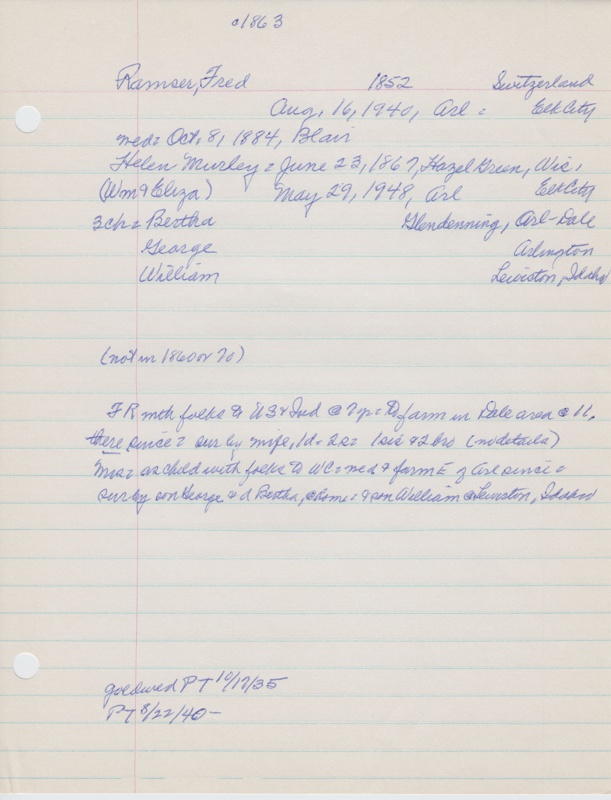 c1863
Ramser, Fred 1852 Switzerland
Aug. 16, 1940, Arl = Elk City
med = Oct. 8, 1884, Blair
Helen Murley = June 23, 1867, Hazel Green, Wis.
(Wm & Eliza) May 29, 1948, Arl Elk City
3 ch = Bertha Glendenning, Arl-Dale
George Arlington
William Lewiston, Idaho
(not in 1860 or 70)
FR with folks to US & Ind @ 7 farm in Dale area @ 11,
there since = sur by wife, 1d - 2s = 1 sis & 2 bro (no details)
Mrs = as child with folks to WC = med & farm E of Arl since =
sur by son George & d Bertha, @ home = & son William @ Lewiston, Idaho
gold wed PT 10/17/35
PT 8/22/40 -